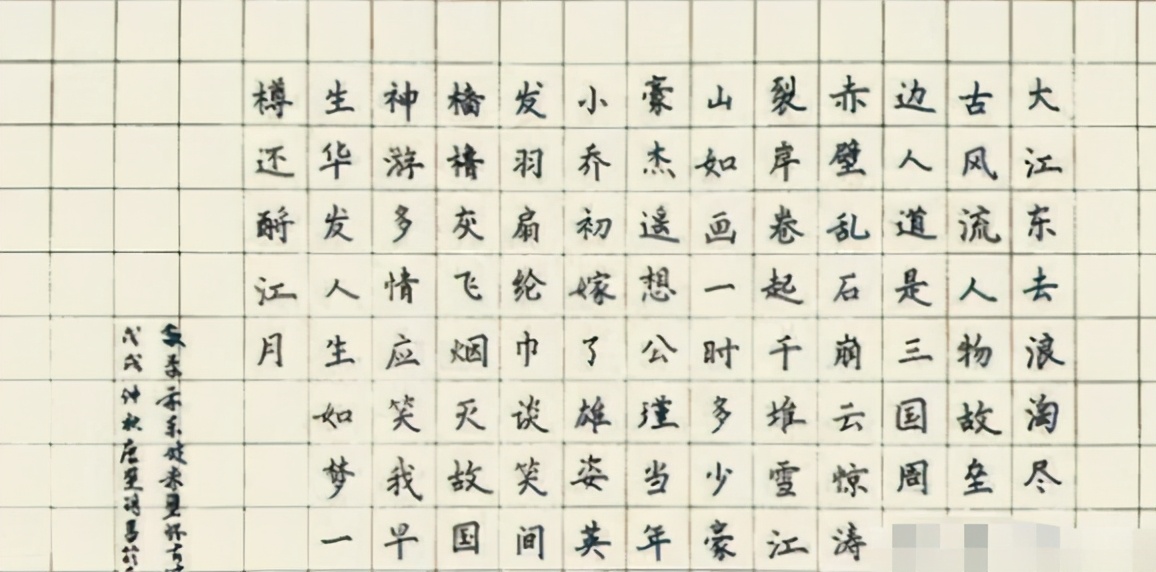 大江东去浪淘尽
古风流人物故垒
边人道是三国周
赤壁乱石崩云惊涛
裂岸卷起千堆雪江
山如画一时多少豪
豪杰遥想公瑾当年
小乔初嫁了雄姿英
发羽扇纶巾谈笑间
樯橹灰飞烟灭故国
神游多情应笑我早
生华发人生如梦一
樽还酹江月
戊戌仲秋